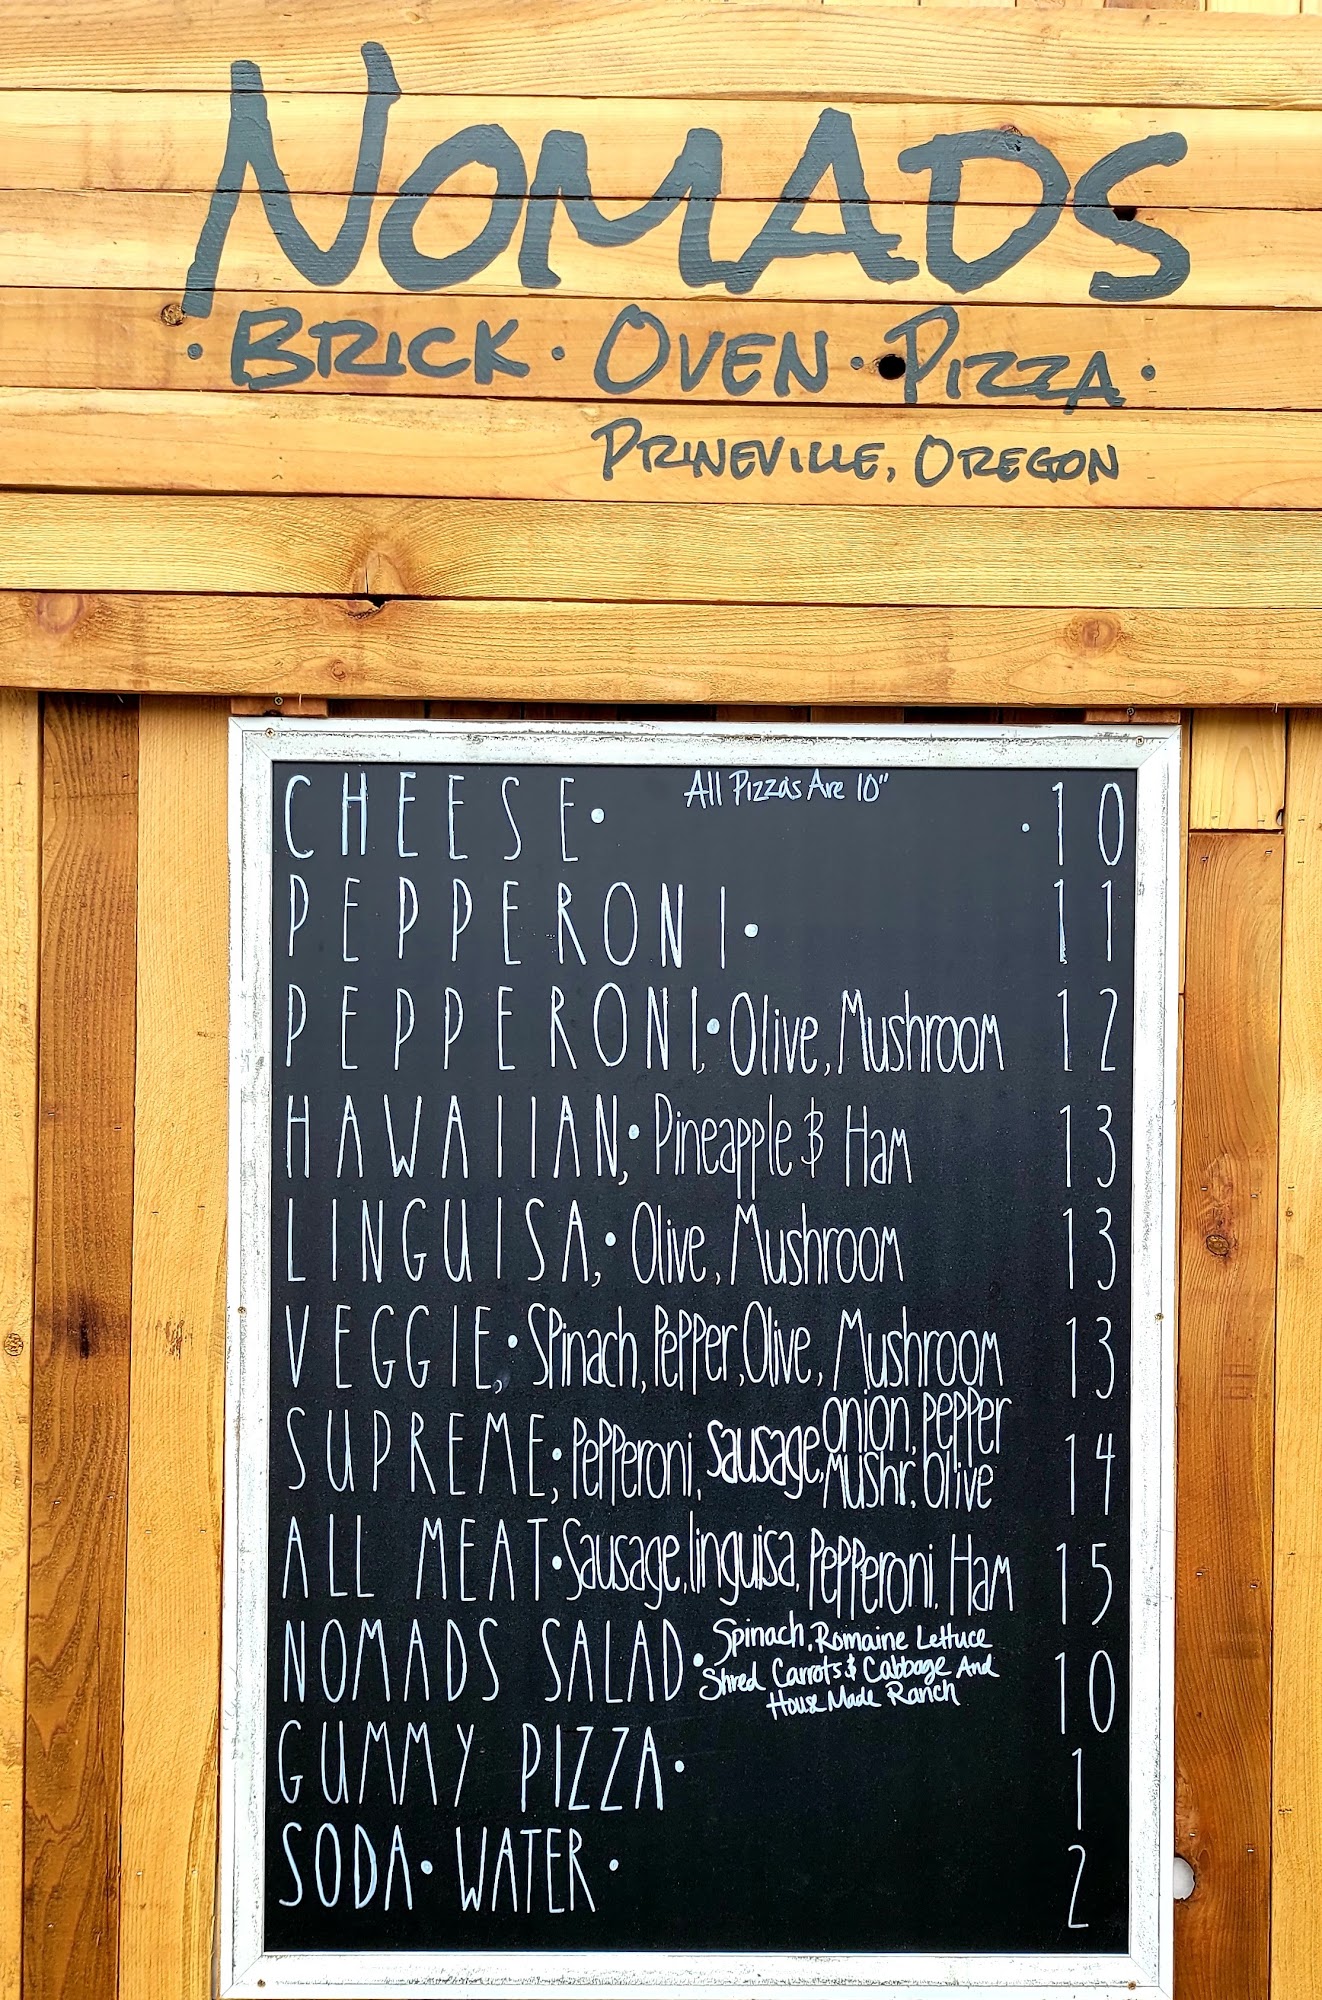 NOMADS
· BRICK · OVEN · PIZZA ·
PRINEVILLE, OREGON
CHEESE· All Pizzas Are 10" · 10
PEPPERONI· 11
PEPPERONI,· Olive, Mushroom 12
HAWAIIAN,· Pineapple & Ham 13
LINGUISA,· Olive, Mushroom 13
VEGGIE,· Spinach, Pepper, Olive, Mushroom 13
SUPREME,· Pepperoni, Sausage, onion, pepper 14
Mushr, Olive
ALL MEAT· Sausage, linguisa, Pepperoni, Ham 15
NOMADS SALAD· Spinach, Romaine Lettuce 10
Shred Carrots & Cabbage And
House Made Ranch
GUMMY PIZZA· 1
SODA· WATER· 2